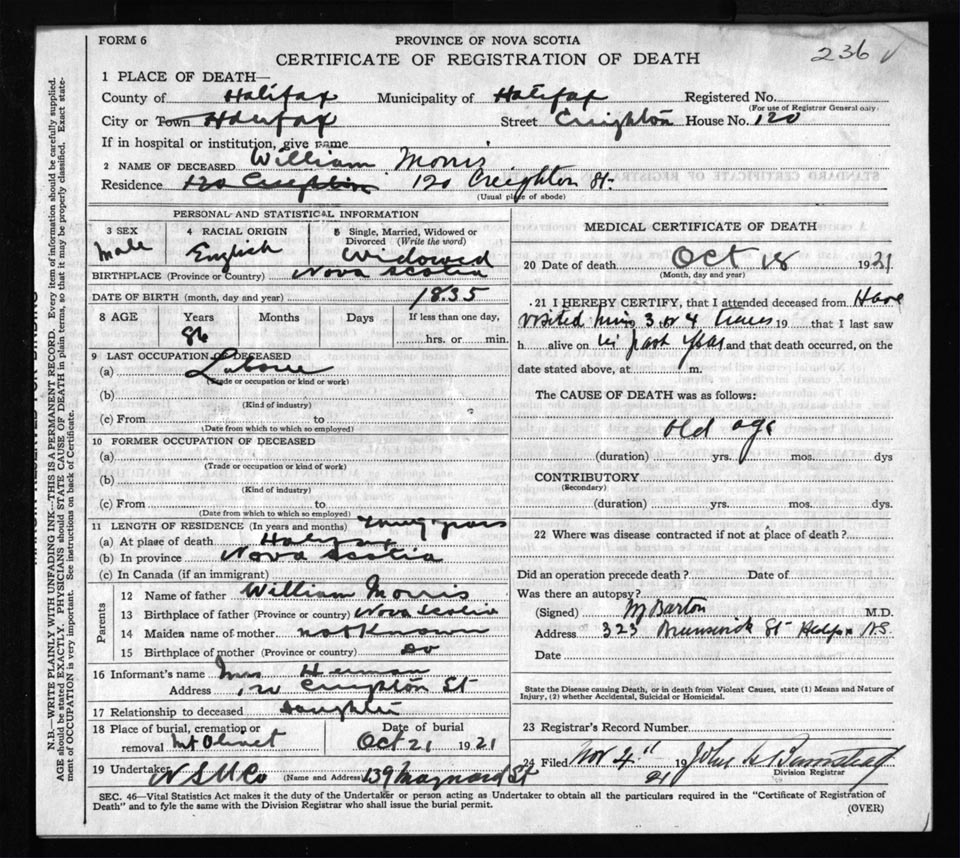 FORM 6
PROVINCE OF NOVA SCOTIA
236
CERTIFICATE OF REGISTRATION OF DEATH
1 PLACE OF DEATH—
County of Halifax Municipality of Halifax Registered No.
(For use of Registrar General only)
City or Town Halifax Street Creighton House No. 120
If in hospital or institution, give name
2 NAME OF DECEASED William Morris
Residence 120 Creighton 120 Creighton St.
(Usual place of abode)
PERSONAL AND STATISTICAL INFORMATION
3 SEX 4 RACIAL ORIGIN 5 Single, Married, Widowed or Divorced (Write the word)
Male English Widowed
BIRTHPLACE (Province or Country) Nova Scotia
DATE OF BIRTH (month, day and year) 1835
8 AGE Years Months Days If less than one day,
86 hrs. or min.
9 LAST OCCUPATION OF DECEASED
(a) Laborer
(Trade or occupation or kind or work)
(b)
(Kind of industry)
(c) From to
(Date from which to which so employed)
10 FORMER OCCUPATION OF DECEASED
(a)
(Trade or occupation or kind of work)
(b)
(Kind of industry)
(c) From to
(Date from which to which so employed)
11 LENGTH OF RESIDENCE (In years and months) years
(a) At place of death Halifax
(b) In province Nova Scotia
(c) In Canada (if an immigrant)
Parents
12 Name of father William Morris
13 Birthplace of father (Province or country) Nova Scotia
14 Maiden name of mother not Known
15 Birthplace of mother (Province or country) do
16 Informant's name Mrs Herman
Address 120 Creighton St
17 Relationship to deceased Daughter
18 Place of burial, cremation or removal Mt Olivet
Date of burial Oct 21 1921
19 Undertaker N S U Co (Name and Address) 139 Maynard St
MEDICAL CERTIFICATE OF DEATH
20 Date of death Oct 18 1921
(Month, day and year)
21 I HEREBY CERTIFY, that I attended deceased from Have
visited him 3 or 4 times 19 that I last saw
h alive on in past year and that death occurred, on the
date stated above, at m.
The CAUSE OF DEATH was as follows:
old age
(duration) yrs. mos. dys
CONTRIBUTORY
(Secondary)
(duration) yrs. mos. dys.
22 Where was disease contracted if not at place of death?
Did an operation precede death? Date of
Was there an autopsy?
(Signed) Barton M.D.
Address 323 Brunswick St Halifax N.S.
Date
State the Disease causing Death, or in death from Violent Causes, state (1) Means and Nature of
Injury, and (2) whether Accidental, Suicidal or Homicidal.
23 Registrar's Record Number
24 Filed Nov 4" 1921 John
Division Registrar
SEC. 46—Vital Statistics Act makes it the duty of the Undertaker or person acting as Undertaker to obtain all the particulars required in the "Certificate of Registration of
Death" and to fyle the same with the Division Registrar who shall issue the burial permit.
(OVER)
N.B.—WRITE PLAINLY WITH UNFADING INK—THIS IS A PERMANENT RECORD. Every item of information should be carefully supplied.
AGE should be stated EXACTLY. PHYSICIANS should STATE CAUSE OF DEATH in plain terms, so that it may be properly classified. Exact state-
ment of OCCUPATION is very important. See instructions on back of Certificate.